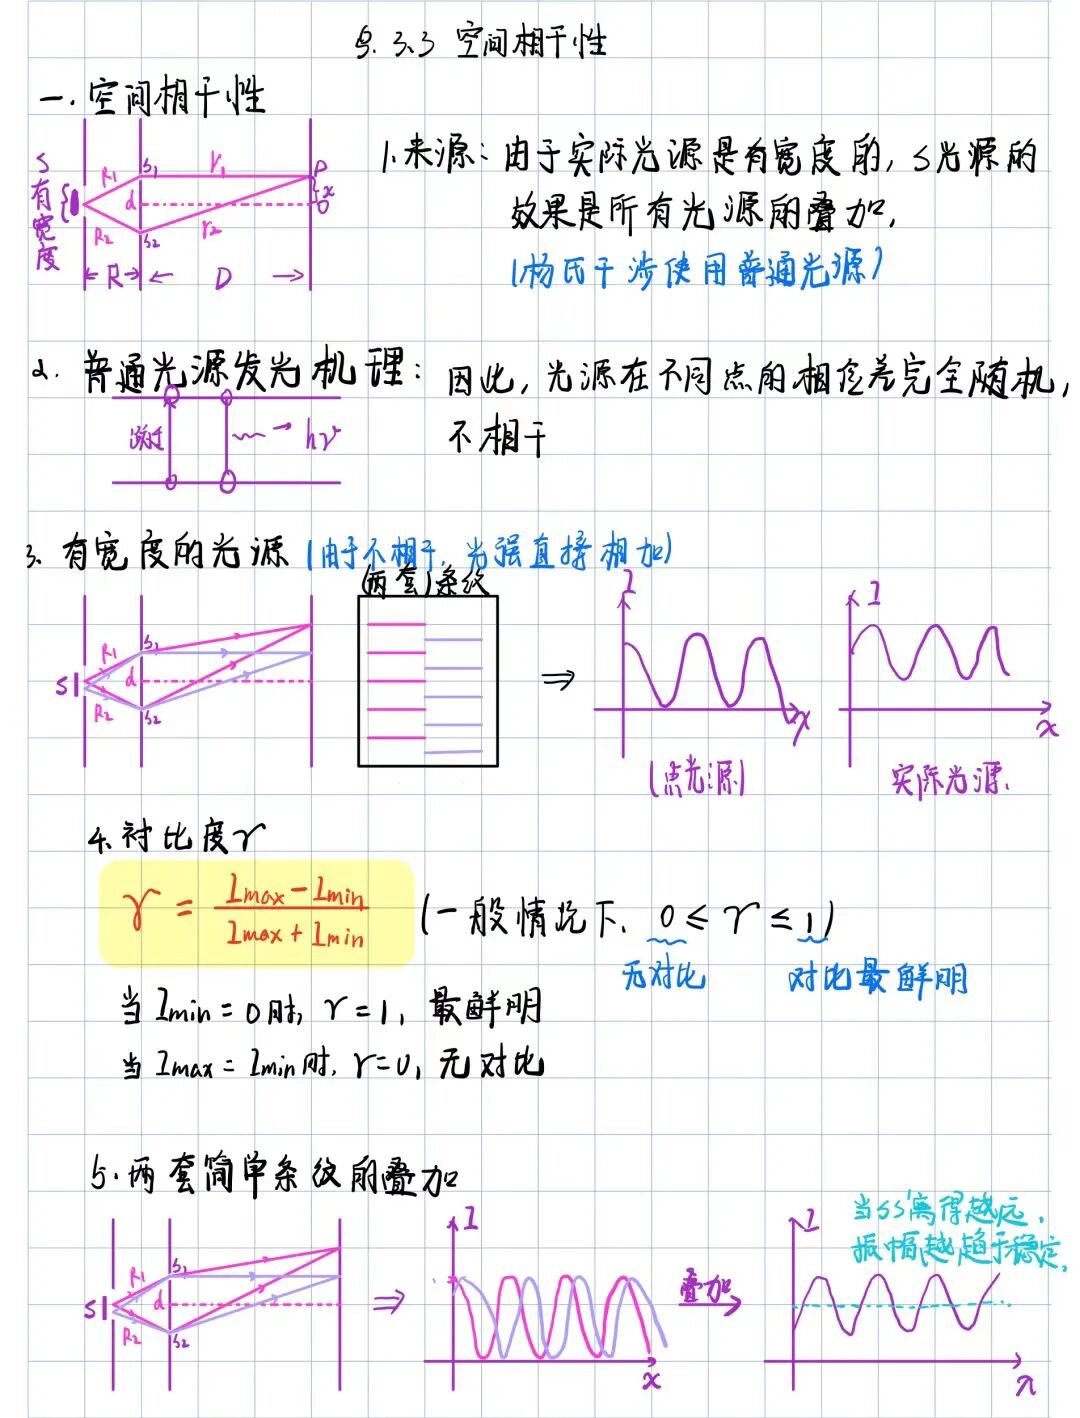 §.3.3 空间相干性
一.空间相干性
S有宽度
R1
R2
S1
S2
d
r1
r2
P
x
O
R
D
1.来源:由于实际光源是有宽度的,S光源的
效果是所有光源的叠加,
(杨氏干涉使用普通光源)
2.普通光源发光机理:因此,光源在不同点的相位差完全随机,
不相干
hν
3.有宽度的光源(由于不相干,光强直接相加)
(两套)条纹
S
R1
R2
S1
S2
d
⇒
I
x
(点光源)
I
x
实际光源.
4.衬比度γ
γ = (Imax - Imin)/(Imax + Imin) (一般情况下, 0 ≤ γ ≤ 1)
无对比 对比最鲜明
当Imin = 0时, γ = 1, 最鲜明
当Imax = Imin时, γ = 0, 无对比
5.两套简单条纹的叠加
S
R1
R2
S1
S2
d
⇒
I
x
叠加
I
x
当SS'离得越远,
振幅越趋于稳定,